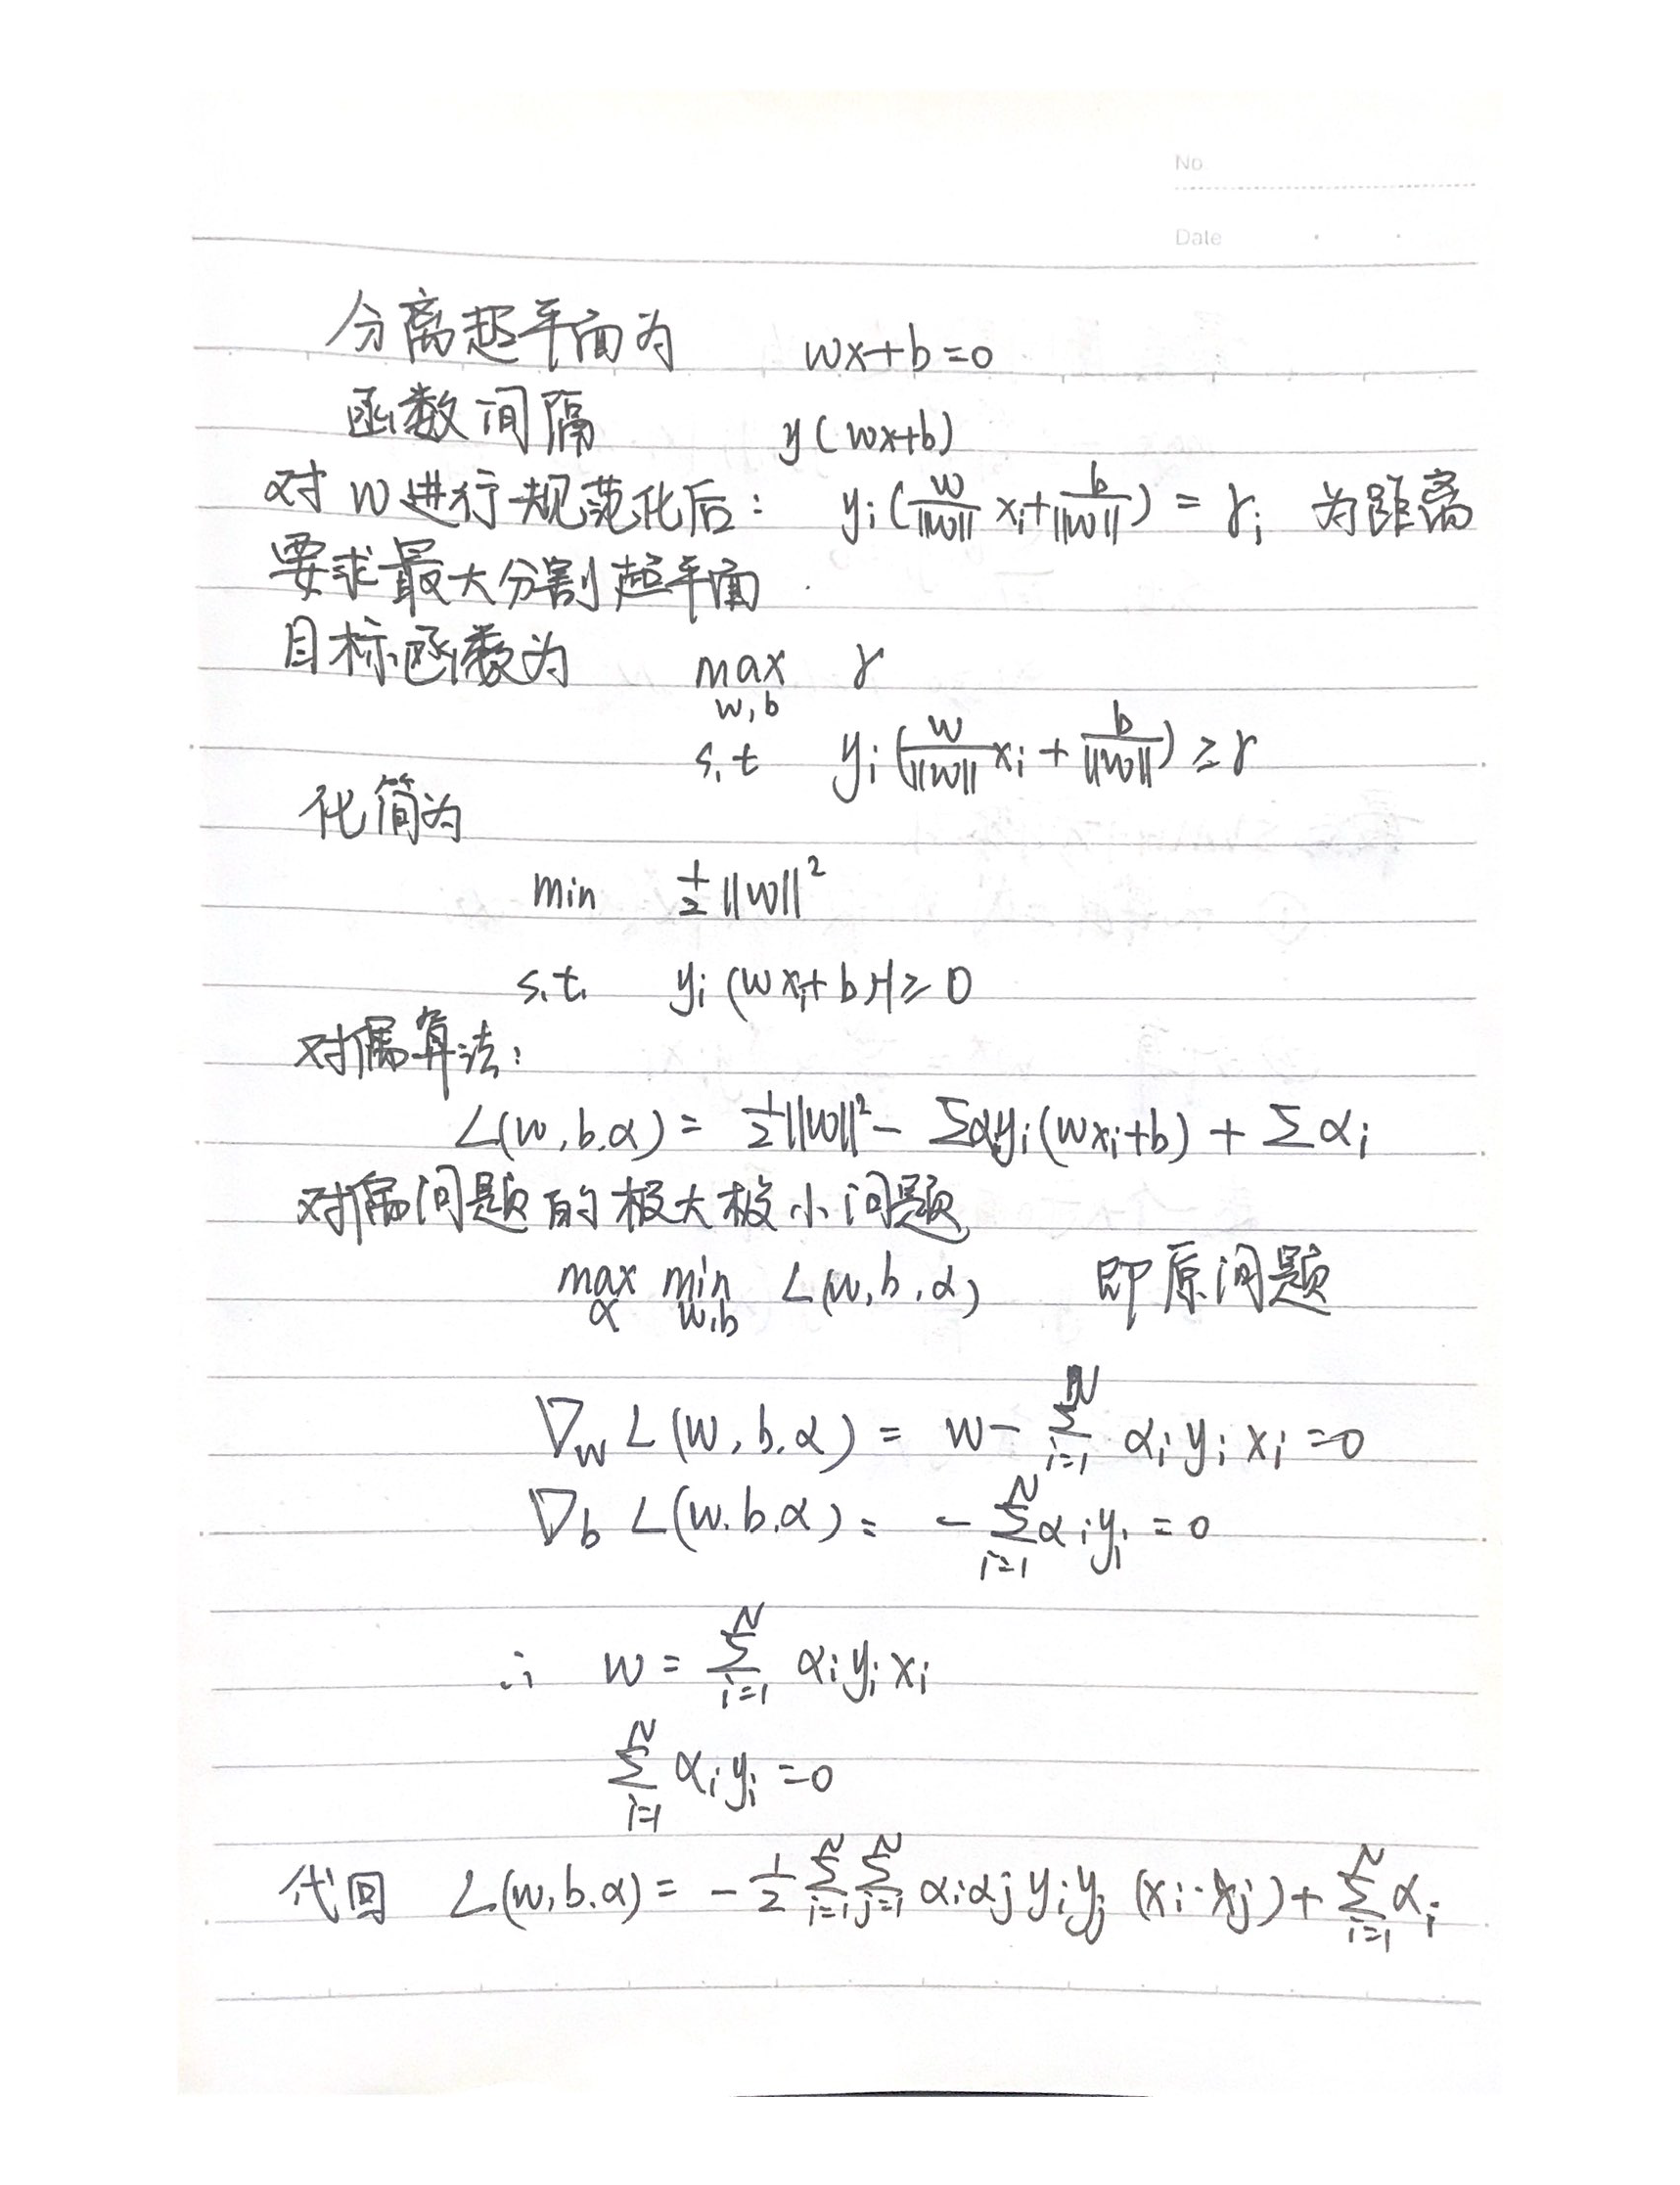 No
Date
分离超平面为 wx+b=0
函数间隔 y(wx+b)
对w进行规范化后: yᵢ(w/||w|| xᵢ+b/||w||) = γᵢ 为距离
要求最大分割超平面
目标函数为 max γ
w,b
s.t yᵢ(w/||w|| xᵢ + b/||w||) ≥ γ
化简为
min ½||w||²
s.t. yᵢ(wxᵢ+b)-1≥0
对偶算法:
L(w,b,α) = ½||w||² - Σαᵢyᵢ(wxᵢ+b) + Σαᵢ
对偶问题的极大极小问题
max min L(w,b,α) 即原问题
α w,b
∇w L(w,b,α) = w - Σᵢ₌₁ᴺ αᵢyᵢxᵢ=0
∇b L(w,b,α) = -Σᵢ₌₁ᴺ αᵢyᵢ=0
∴ w = Σᵢ₌₁ᴺ αᵢyᵢxᵢ
Σᵢ₌₁ᴺ αᵢyᵢ=0
代回 L(w,b,α) = -½ Σᵢ₌₁ᴺ Σⱼ₌₁ᴺ αᵢαⱼyᵢyⱼ(xᵢ·xⱼ) + Σᵢ₌₁ᴺ αᵢ